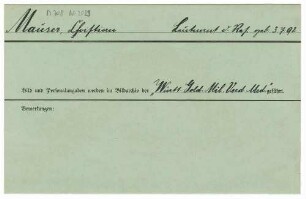 Mauser, Christian Leutnant d. Res. geb. 3.7.93
Bild und Personalangaben wurden in Bildarchiv der "Württ. Gold. Mil. Verd. Med."
Bemerkungen: